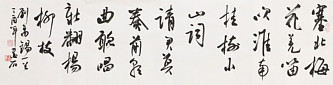 塞北梅
花羌笛
吹淮南
桂樹小
山詞
請君莫
奏前朝
曲聽唱
新翻楊
柳枝
劉禹錫